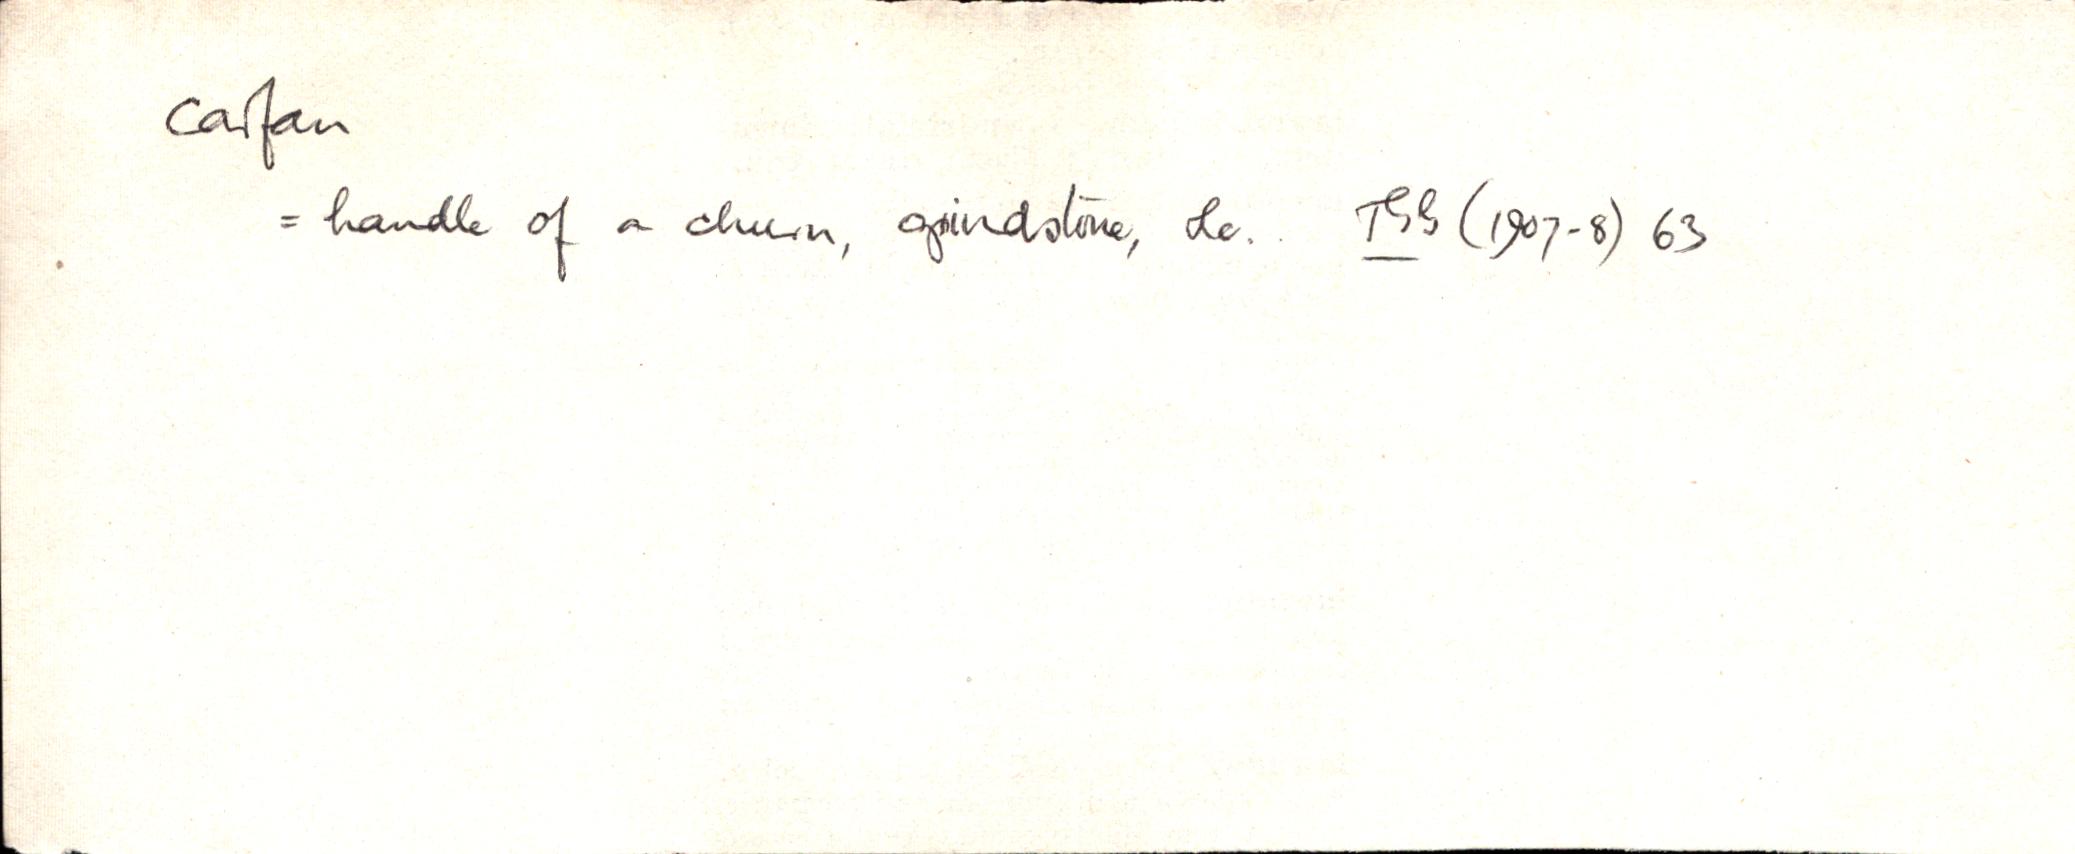 carfan
= handle of a churn, grindstone, &c. TGG (1907-8) 63